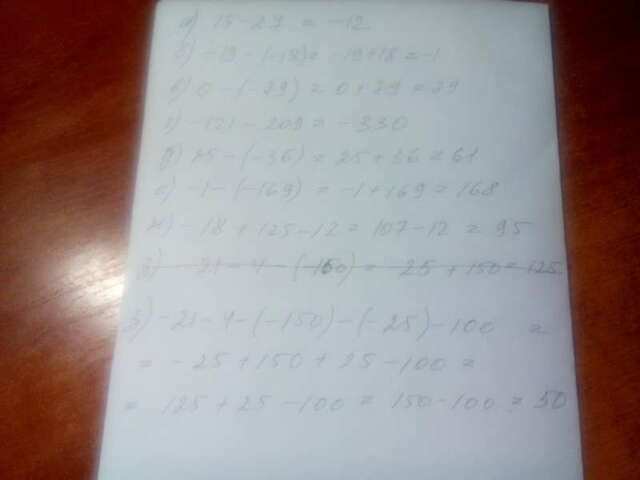 а) 15 - 27 = -12
б) -19 - (-18) = -19 + 18 = -1
в) 0 - (-79) = 0 + 79 = 79
г) -121 - 209 = -330
д) 25 - (-36) = 25 + 36 = 61
е) -1 - (-169) = -1 + 169 = 168
ж) -18 + 125 - 12 = 107 - 12 = 95
з) -21 - 4 - (-150) = 25 + 150 = 125
з) -21 - 4 - (-150) - (-25) - 100 =
= -25 + 150 + 25 - 100 =
= 125 + 25 - 100 = 150 - 100 = 50